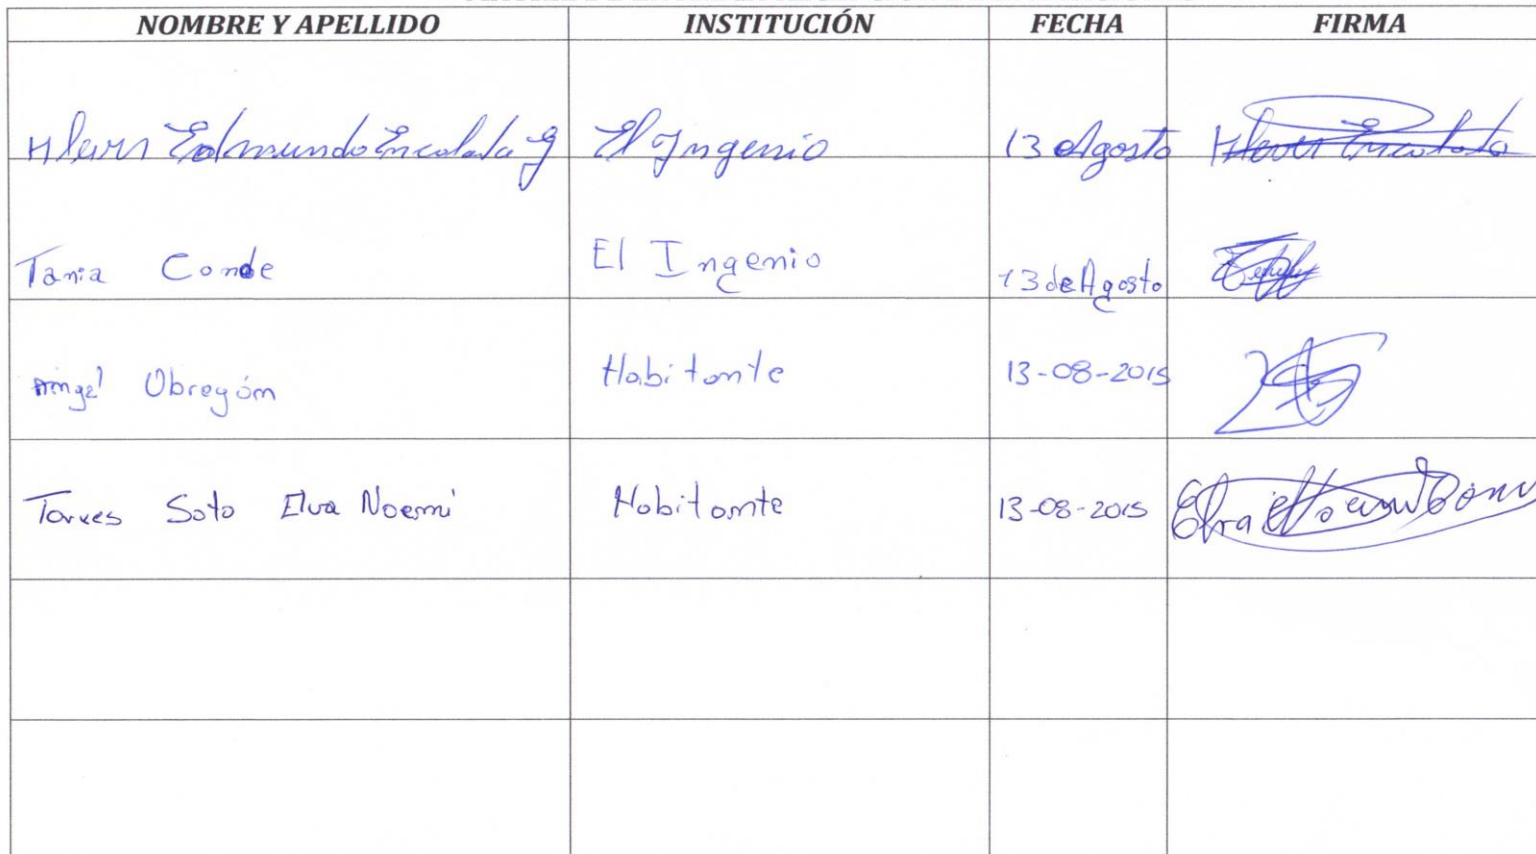 NOMBRE Y APELLIDO INSTITUCIÓN FECHA FIRMA
Edmundo Encalada El Ingenio 13 Agosto
Tania Conde El Ingenio 13 de Agosto
Angel Obregón Habitante 13-08-2015
Torres Soto Elva Noemi Habitante 13-08-2015